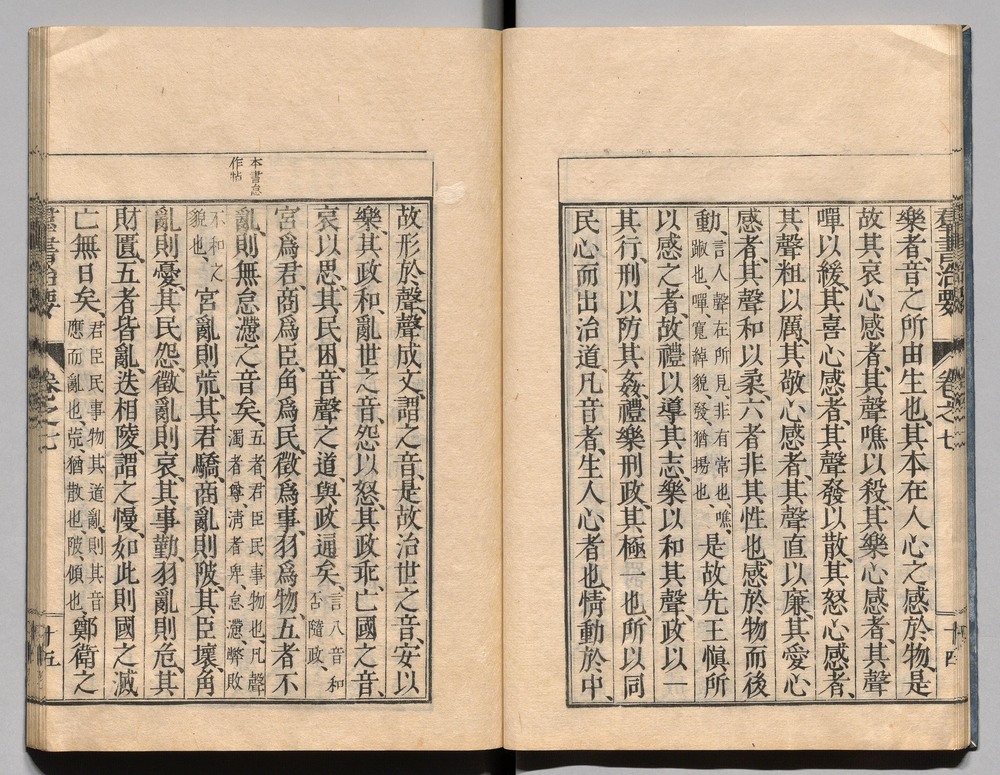 羣書治要 卷之七 十四
樂者、音之所由生也、其本在人心之感於物、是
故其哀心感者、其聲噍以殺、其樂心感者、其聲
嘽以緩、其喜心感者、其聲發以散、其怒心感者、
其聲粗以厲、其敬心感者、其聲直以廉、其愛心
感者、其聲和以柔、六者非其性也、感於物而後
動、言人聲在所見、非有常也、噍、
踧也、嘽、寬綽貌、發、猶揚也、是故先王愼所
以感之者、故禮以導其志、樂以和其聲、政以一
其行、刑以防其姦、禮樂刑政、其極一也、所以同
民心而出治道、凡音者、生人心者也、情動於中、
故形於聲、聲成文、謂之音、是故治世之音、安以
樂、其政和、亂世之音、怨以怒、其政乖、亡國之音、
哀以思、其民困、音聲之道、與政通矣、言八音和
否隨政、
宮爲君、商爲臣、角爲民、徵爲事、羽爲物、五者不
本書怠
作怗
亂、則無怠懘之音矣、五者君臣民事物也、凡聲
濁者尊、淸者卑、怠懘、弊敗
不和之
貌也、宮亂則荒、其君驕、商亂則陂、其臣壞、角
亂則憂、其民怨、徵亂則哀、其事勤、羽亂則危、其
財匱、五者皆亂、迭相陵、謂之慢、如此則國之滅
亡無日矣、君臣民事物、其道亂、則其音
應而亂也、荒、猶散也、陂、傾也、鄭衛之
羣書治要 卷之七 十五